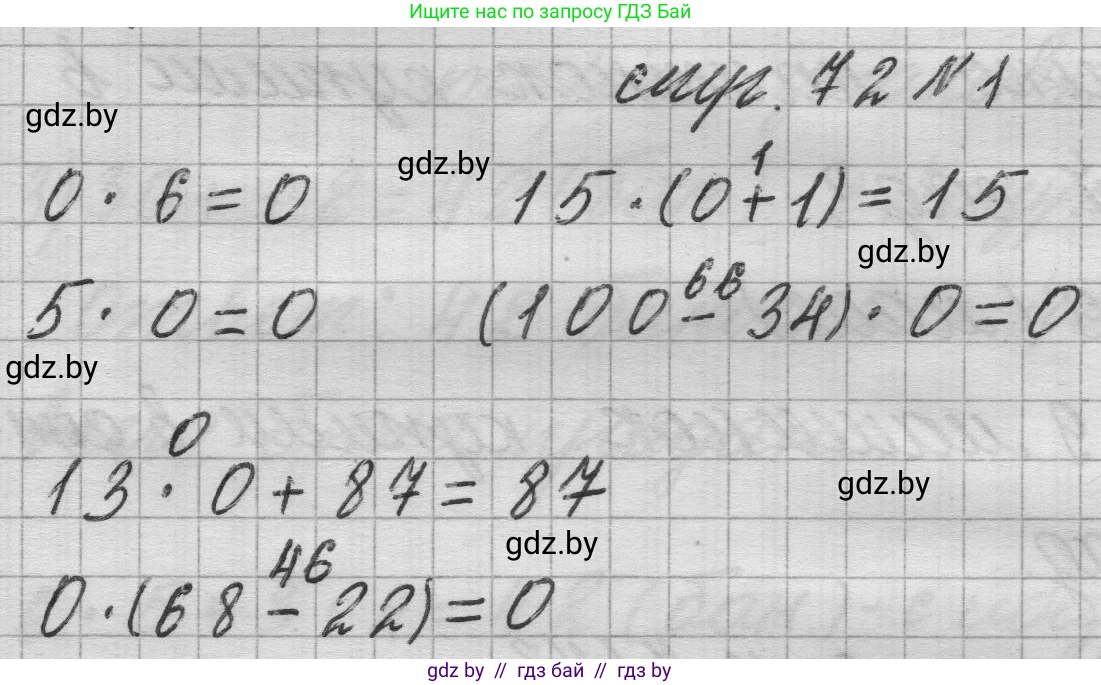 Ищите нас по запросу ГДЗ Бай
стр. 72 № 1
gdz.by
gdz.by
0 · 6 = 0
1
15 · (0 + 1) = 15
gdz.by
5 · 0 = 0
66
(100 - 34) · 0 = 0
gdz.by
0
13 · 0 + 87 = 87
gdz.by
gdz.by
46
0 · (68 - 22) = 0
gdz by // гдз бай // гдз by